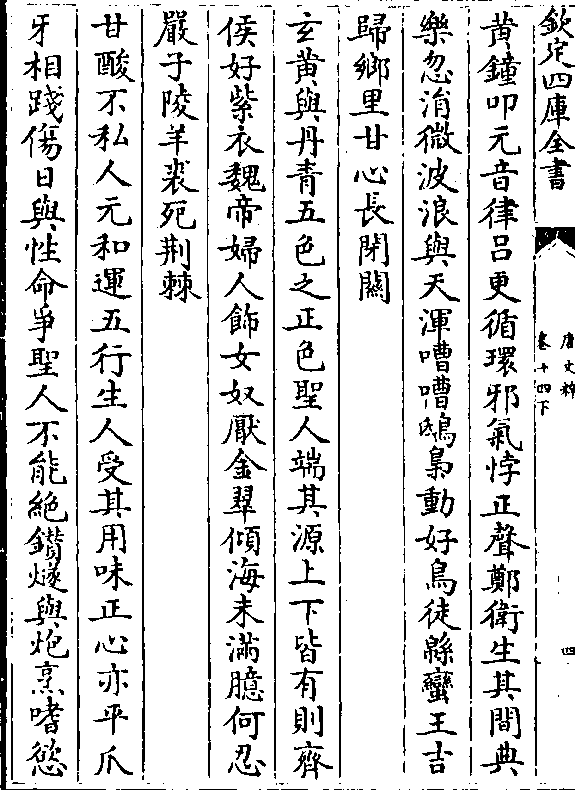 欽定四庫全書
唐文粹
卷十四下
四
黄鐘叩元音律呂更循環邪氣悖正聲鄭衛生其間典
樂忽涓微波浪與天渾嘈嘈鴟梟動好鳥徒緜蠻王吉
歸鄉里甘心長閉關
玄黄與丹青五色之正色聖人端其源上下皆有則齊
侯好紫衣魏帝婦人飾女奴厭金翠傾海未滿臆何忍
嚴子陵羊裘死荆棘
甘酸不私人元和運五行生人受其用味正心亦平爪
牙相踐傷日與性命爭聖人不能絶鑚燧與炮烹嗜慾